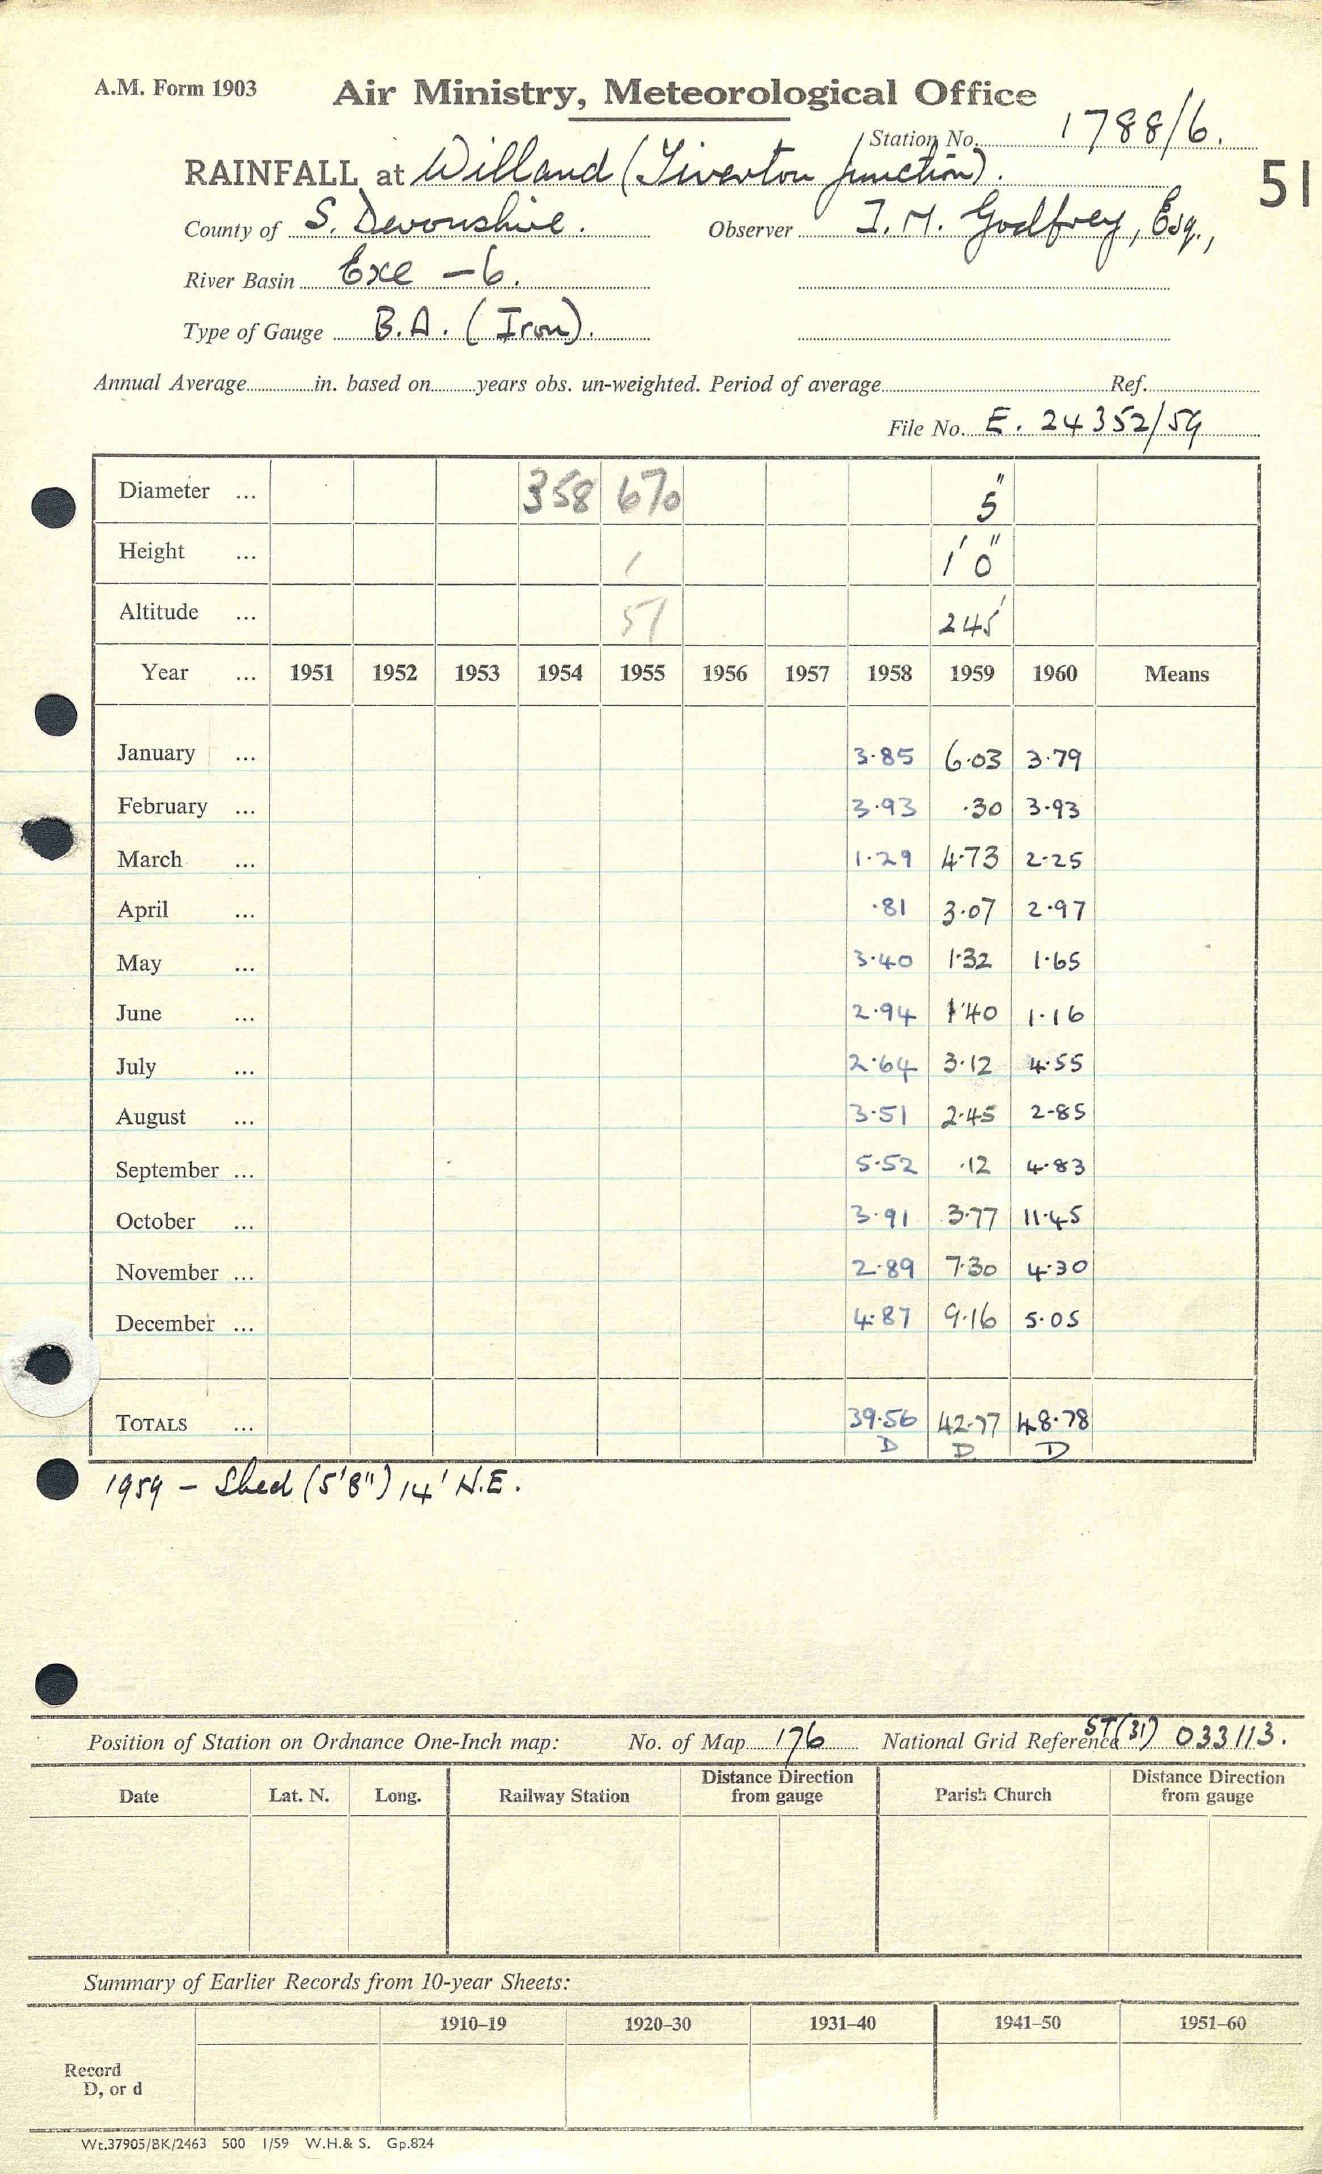 A.M. Form 1903
Air Ministry, Meteorological Office
Station No. 1788/6.
RAINFALL at Willand (Tiverton Junction).
51
County of S. Devonshire.
Observer I.M. Godfrey, Esq.,
River Basin Exe - 6.
Type of Gauge B.A. (Iron).
Annual Average in. based on years obs. un-weighted. Period of average Ref.
File No. E. 24352/59
Diameter ... 358 670 5"
Height ... 1 1' 0"
Altitude ... 51 245'
Year ... 1951 1952 1953 1954 1955 1956 1957 1958 1959 1960 Means
January ... 3·85 6·03 3·79
February ... 3·93 ·30 3·93
March ... 1·29 4·73 2·25
April ... ·81 3·07 2·97
May ... 3·40 1·32 1·65
June ... 2·94 1·40 1·16
July ... 2·64 3·12 4·55
August ... 3·51 2·45 2·85
September ... 5·52 ·12 4·83
October ... 3·91 3·77 11·45
November ... 2·89 7·30 4·30
December ... 4·87 9·16 5·05
TOTALS ... 39·56 42·77 48·78
D D D
1959 - Shed (5'8") 14' N.E.
Position of Station on Ordnance One-Inch map: No. of Map 176 National Grid Reference ST(31) 033113.
Date Lat. N. Long. Railway Station Distance Direction from gauge Parish Church Distance Direction from gauge
Summary of Earlier Records from 10-year Sheets:
1910–19 1920–30 1931–40 1941–50 1951–60
Record
D, or d
Wt.37905/BK/2463 500 1/59 W.H.& S. Gp.824